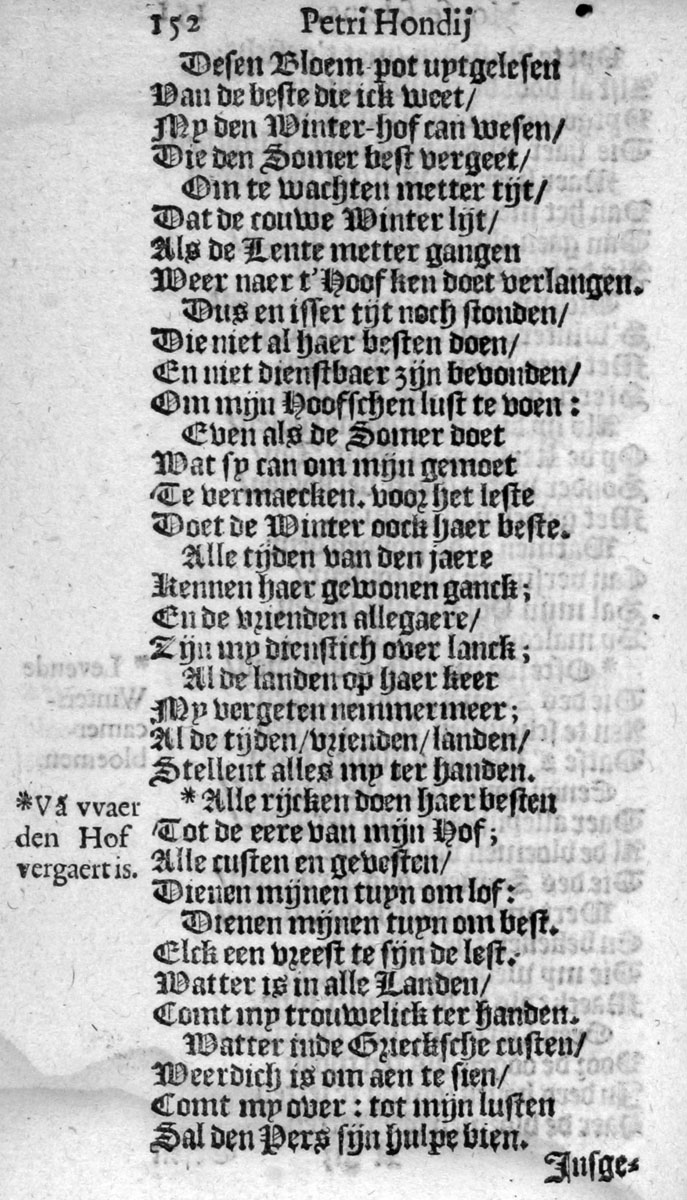 152 Petri Hondij
Desen Bloem-pot uytgelesen
Van de beste die ick weet/
My den Winter-hof can wesen/
Die den Somer best vergeet/
Om te wachten metter tijt/
Dat de couwe Winter lijt/
Als de Lente metter gangen
Weer naer t'Hoofken doet verlangen.
Dus en isser tijt noch stonden/
Die niet al haer besten doen/
En niet dienstbaer zijn bevonden/
Om mijn Hoofschen lust te voen:
Even als de Somer doet
Wat sy can om mijn gemoet
Te vermaecken. voor het leste
Doet de Winter oock haer beste.
Alle tijden van den jaere
Kennen haer gewonen ganck;
En de vrienden allegaere/
Zijn my dienstich over lanck;
Al de landen op haer keer
My vergeten nemmermeer;
Al de tijden/vrienden/landen/
Stellent alles my ter handen.
*Vã vvaer
den Hof
vergaert is.
* Alle rijcken doen haer besten
Tot de eere van mijn Hof;
Alle custen en gevesten/
Dienen mijnen tuyn om lof:
Dienen mijnen tuyn om best.
Elck een vreest te sijn de lest.
Watter is in alle Landen/
Comt my trouwelick ter handen.
Watter inde Griecksche custen/
Weerdich is om aen te sien/
Comt my over: tot mijn lusten
Sal den Pers sijn hulpe bien.
Insge-